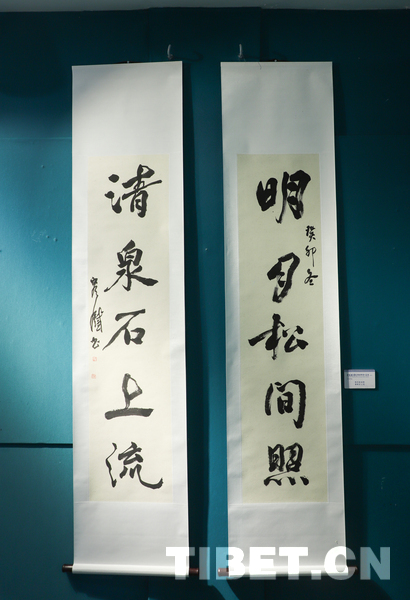 明月松間照
癸卯冬
清泉石上流
TIBET.CN